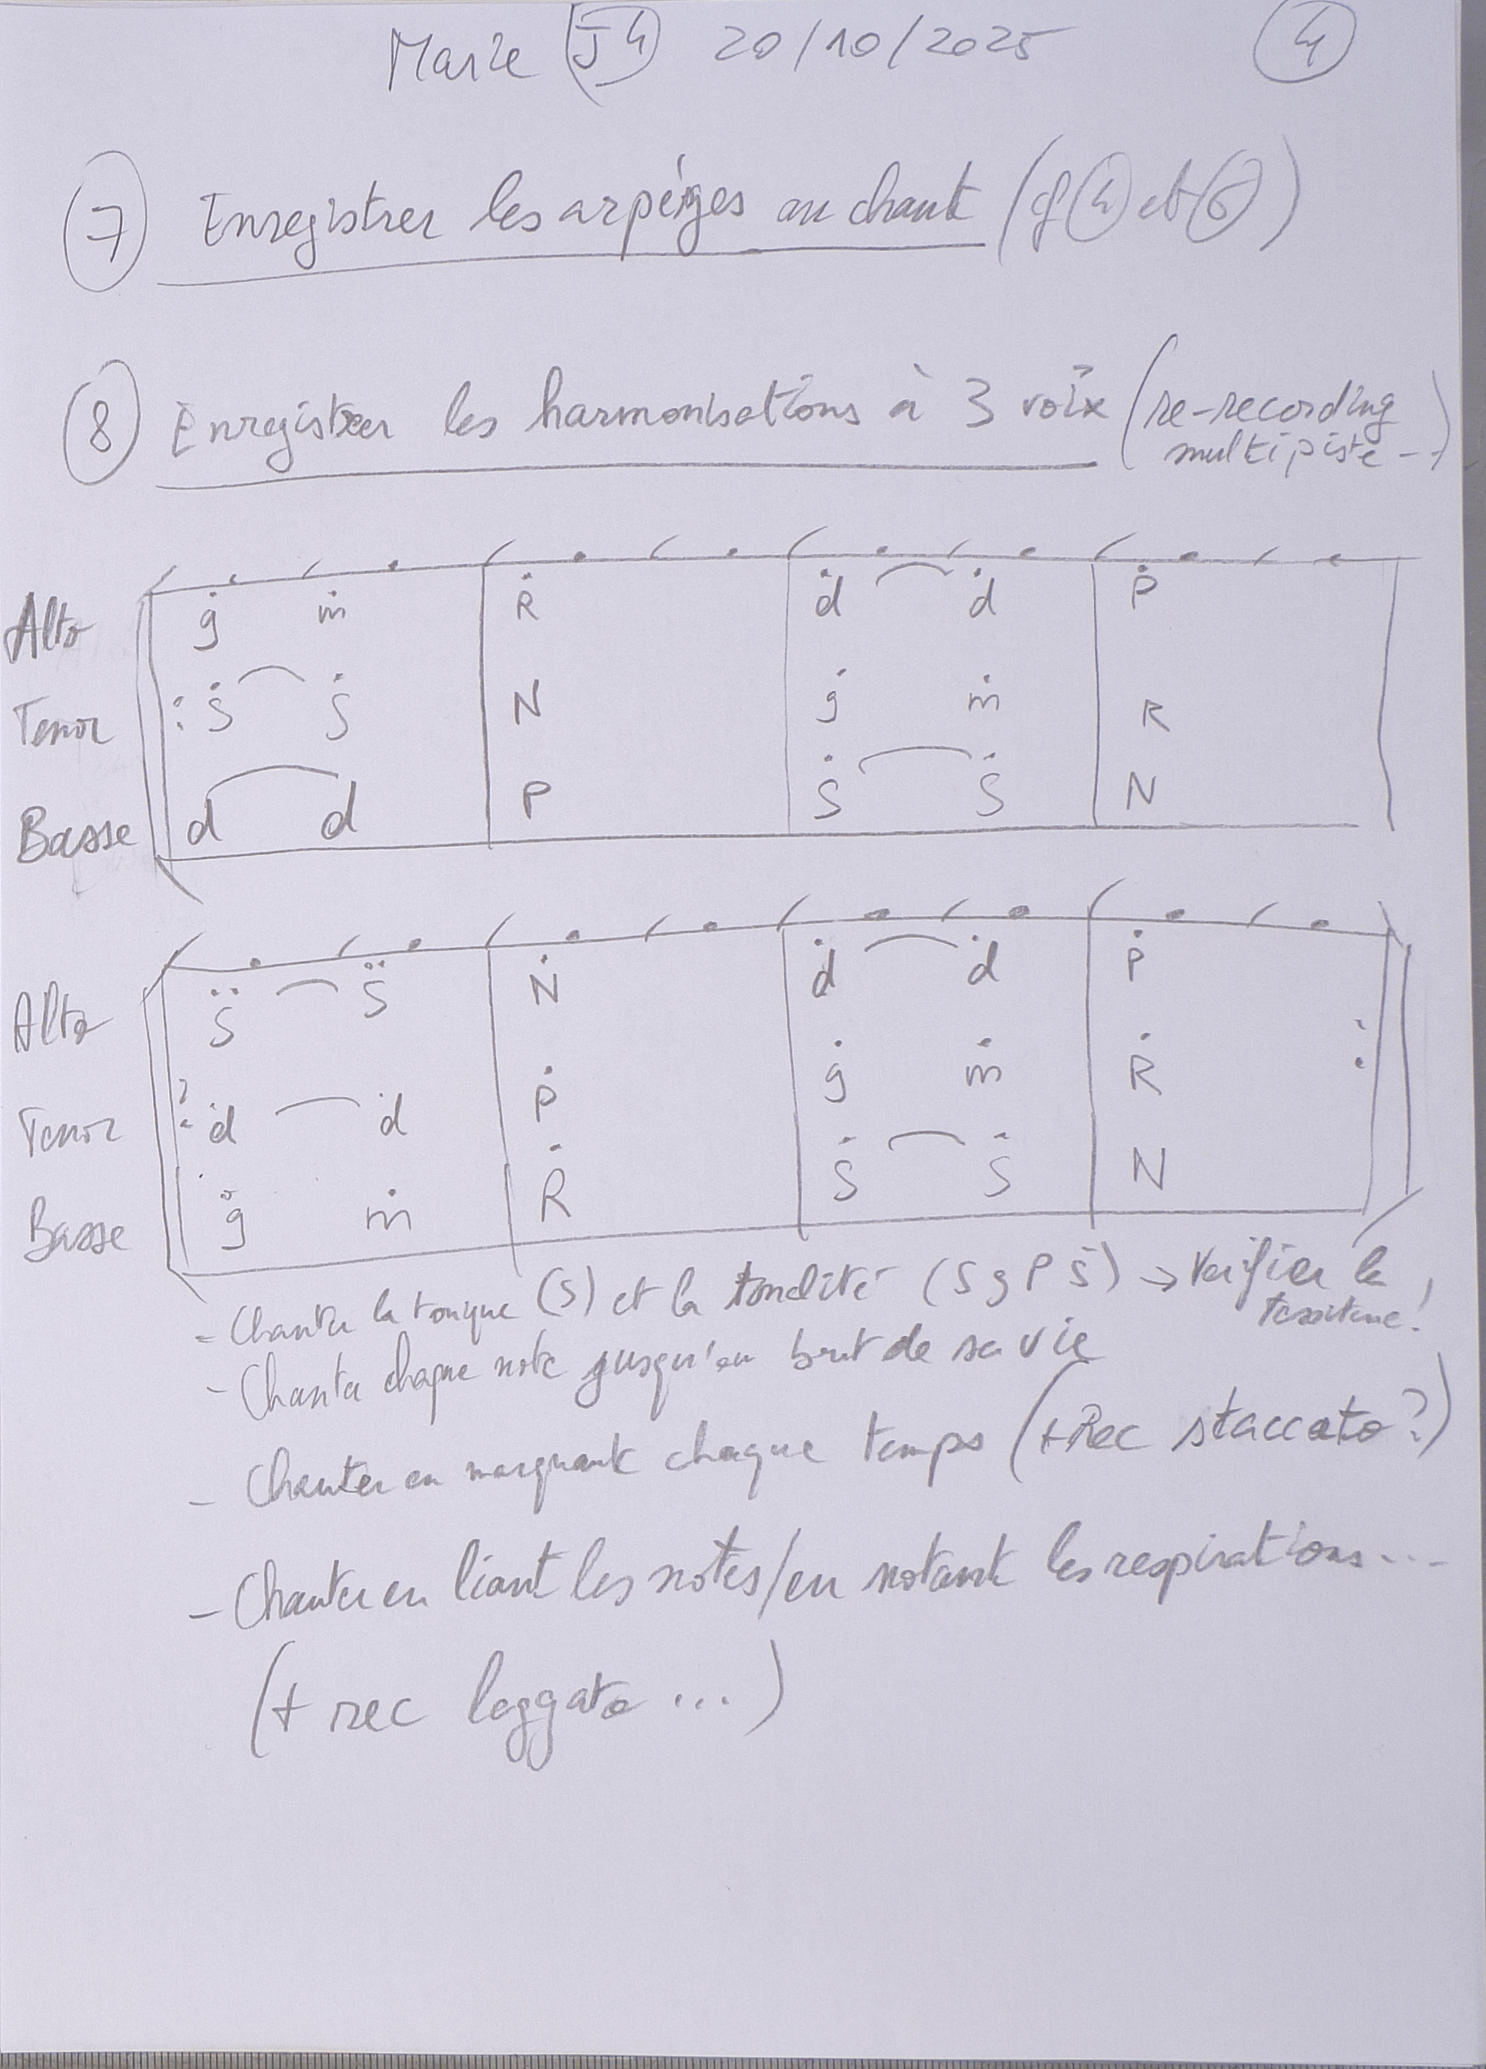 Marie J4 20/10/2025 4
7 Enregistrer les arpéges au chant (cf 4 et 6)
8 Enregistrer les harmonisations à 3 voix (re-recording
multipiste --)
Alto ġ ṁ Ṙ ḋ ḋ Ṗ
Tenor : Ṡ Ṡ N ġ ṁ R
Basse d d P Ṡ Ṡ N
Alto S̈ S̈ Ṅ ḋ ḋ Ṗ
Tenor : ḋ ḋ Ṗ ġ ṁ Ṙ :
Basse ġ ṁ Ṙ Ṡ Ṡ N
- Chanter la tonique (S) et la tonalité (S g P Ṡ) → Verifier la
tessiture!
- Chanter chaque note jusqu'au bout de sa vie
- Chanter en marquant chaque temps (+ Rec staccato?)
- Chanter en liant les notes/en notant les respirations...
(+ rec leggato ...)